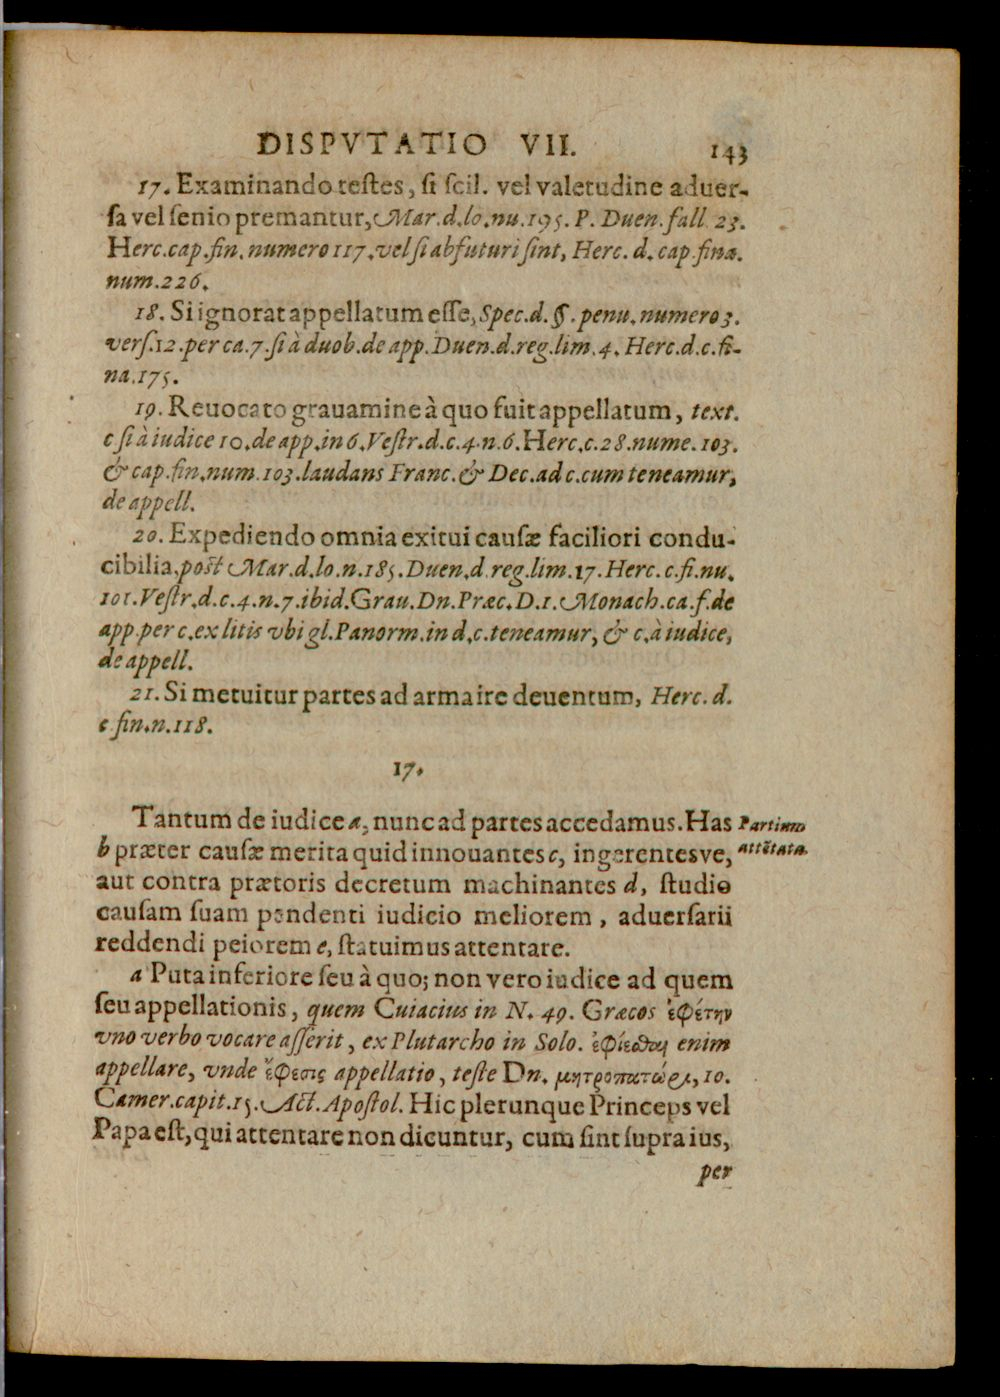 DISPVTATIO VII. 143
17. Examinando testes, si scil. vel valetudine aduer-
sa vel senio premantur, Mar. d. lo. nu. 195. P. Duen. fall. 23.
Herc. cap. fin. numero 117. vel si abfuturi sint, Herc. d. cap. fina.
num. 226.
18. Si ignorat appellatum esse, Spec. d. §. penu. numero 3.
vers. 12. per ca. 7. si à duob. de app. Duen. d. reg. lim. 4. Herc. d. c. fi-
na. 175.
19. Reuocato grauamine à quo fuit appellatum, text.
c si à iudice 10. de app. in 6. Vestr. d. c. 4. n. 6. Herc. c. 28. nume. 103.
& cap. fin. num. 103. laudans Franc. & Dec. ad c. cum teneamur,
de appell.
20. Expediendo omnia exitui causæ faciliori condu-
cibilia, post Mar. d. lo. n. 185. Duen. d. reg. lim. 17. Herc. c. fi. nu.
101. Vestr. d. c. 4. n. 7. ibid. Grau. Dn. Præc. D. 1. Monach. ca. f. de
app. per c. ex litis vbi gl. Panorm. in d. c. teneamur, & c. à iudice,
de appell.
21. Si metuitur partes ad arma ire deuentum, Herc. d.
c fin. n. 118.
17.
Tantum de iudice a, nunc ad partes accedamus. Has Partium
b præter causæ merita quid innouantes c, ingerentesve, attētata.
aut contra prætoris decretum machinantes d, studio
causam suam pendenti iudicio meliorem, aduersarii
reddendi peiorem e, statuimus attentare.
a Puta inferiore seu à quo; non vero iudice ad quem
seu appellationis, quem Cuiacius in N. 49. Græcos ἐφέτην
vno verbo vocare asserit, ex Plutarcho in Solo. ἐφίεσθαι enim
appellare, vnde ἔφεσις appellatio, teste Dn. μητροπατώρι, 10.
Camer. capit. 15. Act. Apostol. Hic plerunque Princeps vel
Papa est, qui attentare non dicuntur, cum sint supra ius,
per